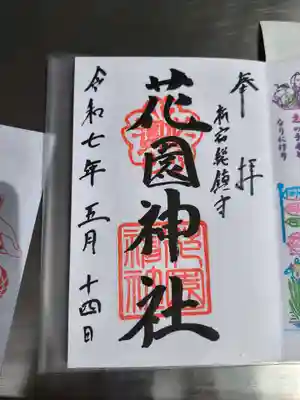 奉拝
新宿総鎮守
花園神社
令和七年 五月 十四日
花園神社